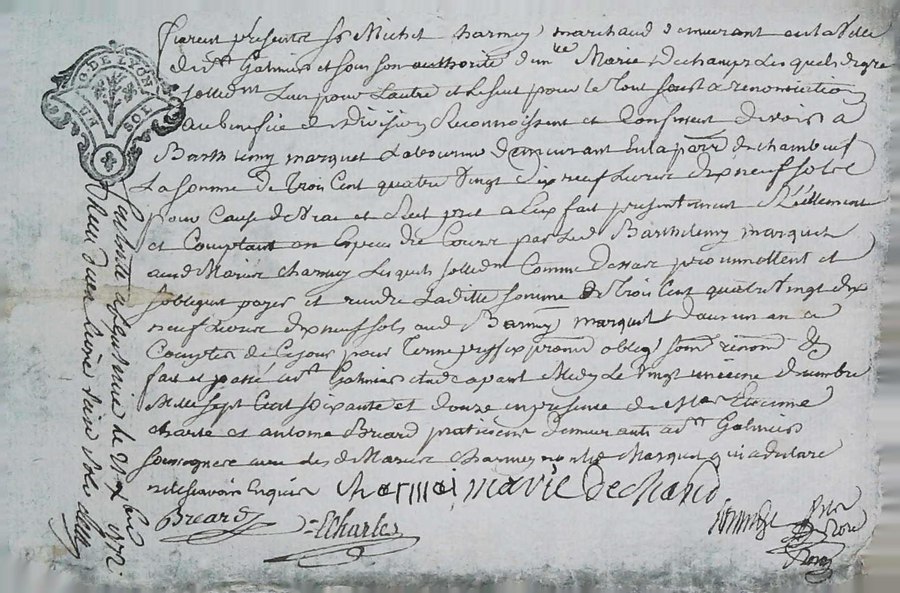 G. DE LYON
SOL
furent présents sr Michel charmey marchand demeurant en la ville
de st Galmier et sous son authorité d'une Marie Dechamps Lesquels de gré
sollidnt Lun pour Lautre et Le seul pour le tout sous la renonciation
au benefice de division Reconnoissent et Confessent devoir a
Barthlemy marquet Laboureur demeurant en la parre de chambeuf
La somme de trois Cent quatre vingt dix neuf Livres dix neuf sols
pour Cause de vrai et Réel pret a Eux fait presentement Réellement
et Comptant en Especes de Cours par Led Barthelemy marquet
aud Mariés Charmey Lesquels sollidnt Comme dessus promettent et
sobligent payer et rendre Laditte somme de trois Cent quatre vingt dix
neuf Livres dix neuf sols aud Barmy marquet dans un an a
Compter de Ce jour pour terme preffix promr oblig somr renon &
fait et passé a st Galmier Etude avant Midy Le vingt decembre
Mille sept Cent soixante et douze en presence de Etienne
charle et antoine Briard praticiens demeurants a st Galmier
soussignés avec des d Mariés Charmey non led Marquet qui a declaré
ne le savoir Enquis charmei marie dechand
Breard Echarles
Controllé a St Galmier le 21 xbre 1772
Reçu deux livres sols